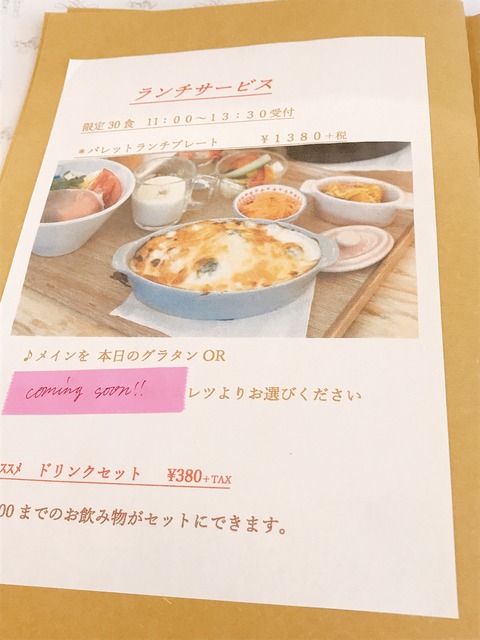 ランチサービス
限定30食 11:00～13:30受付
※パレットランチプレート ¥1380+税
♪メインを 本日のグラタン OR
coming soon!! レツよりお選びください
ススメ ドリンクセット ¥380+TAX
00までのお飲み物がセットにできます。